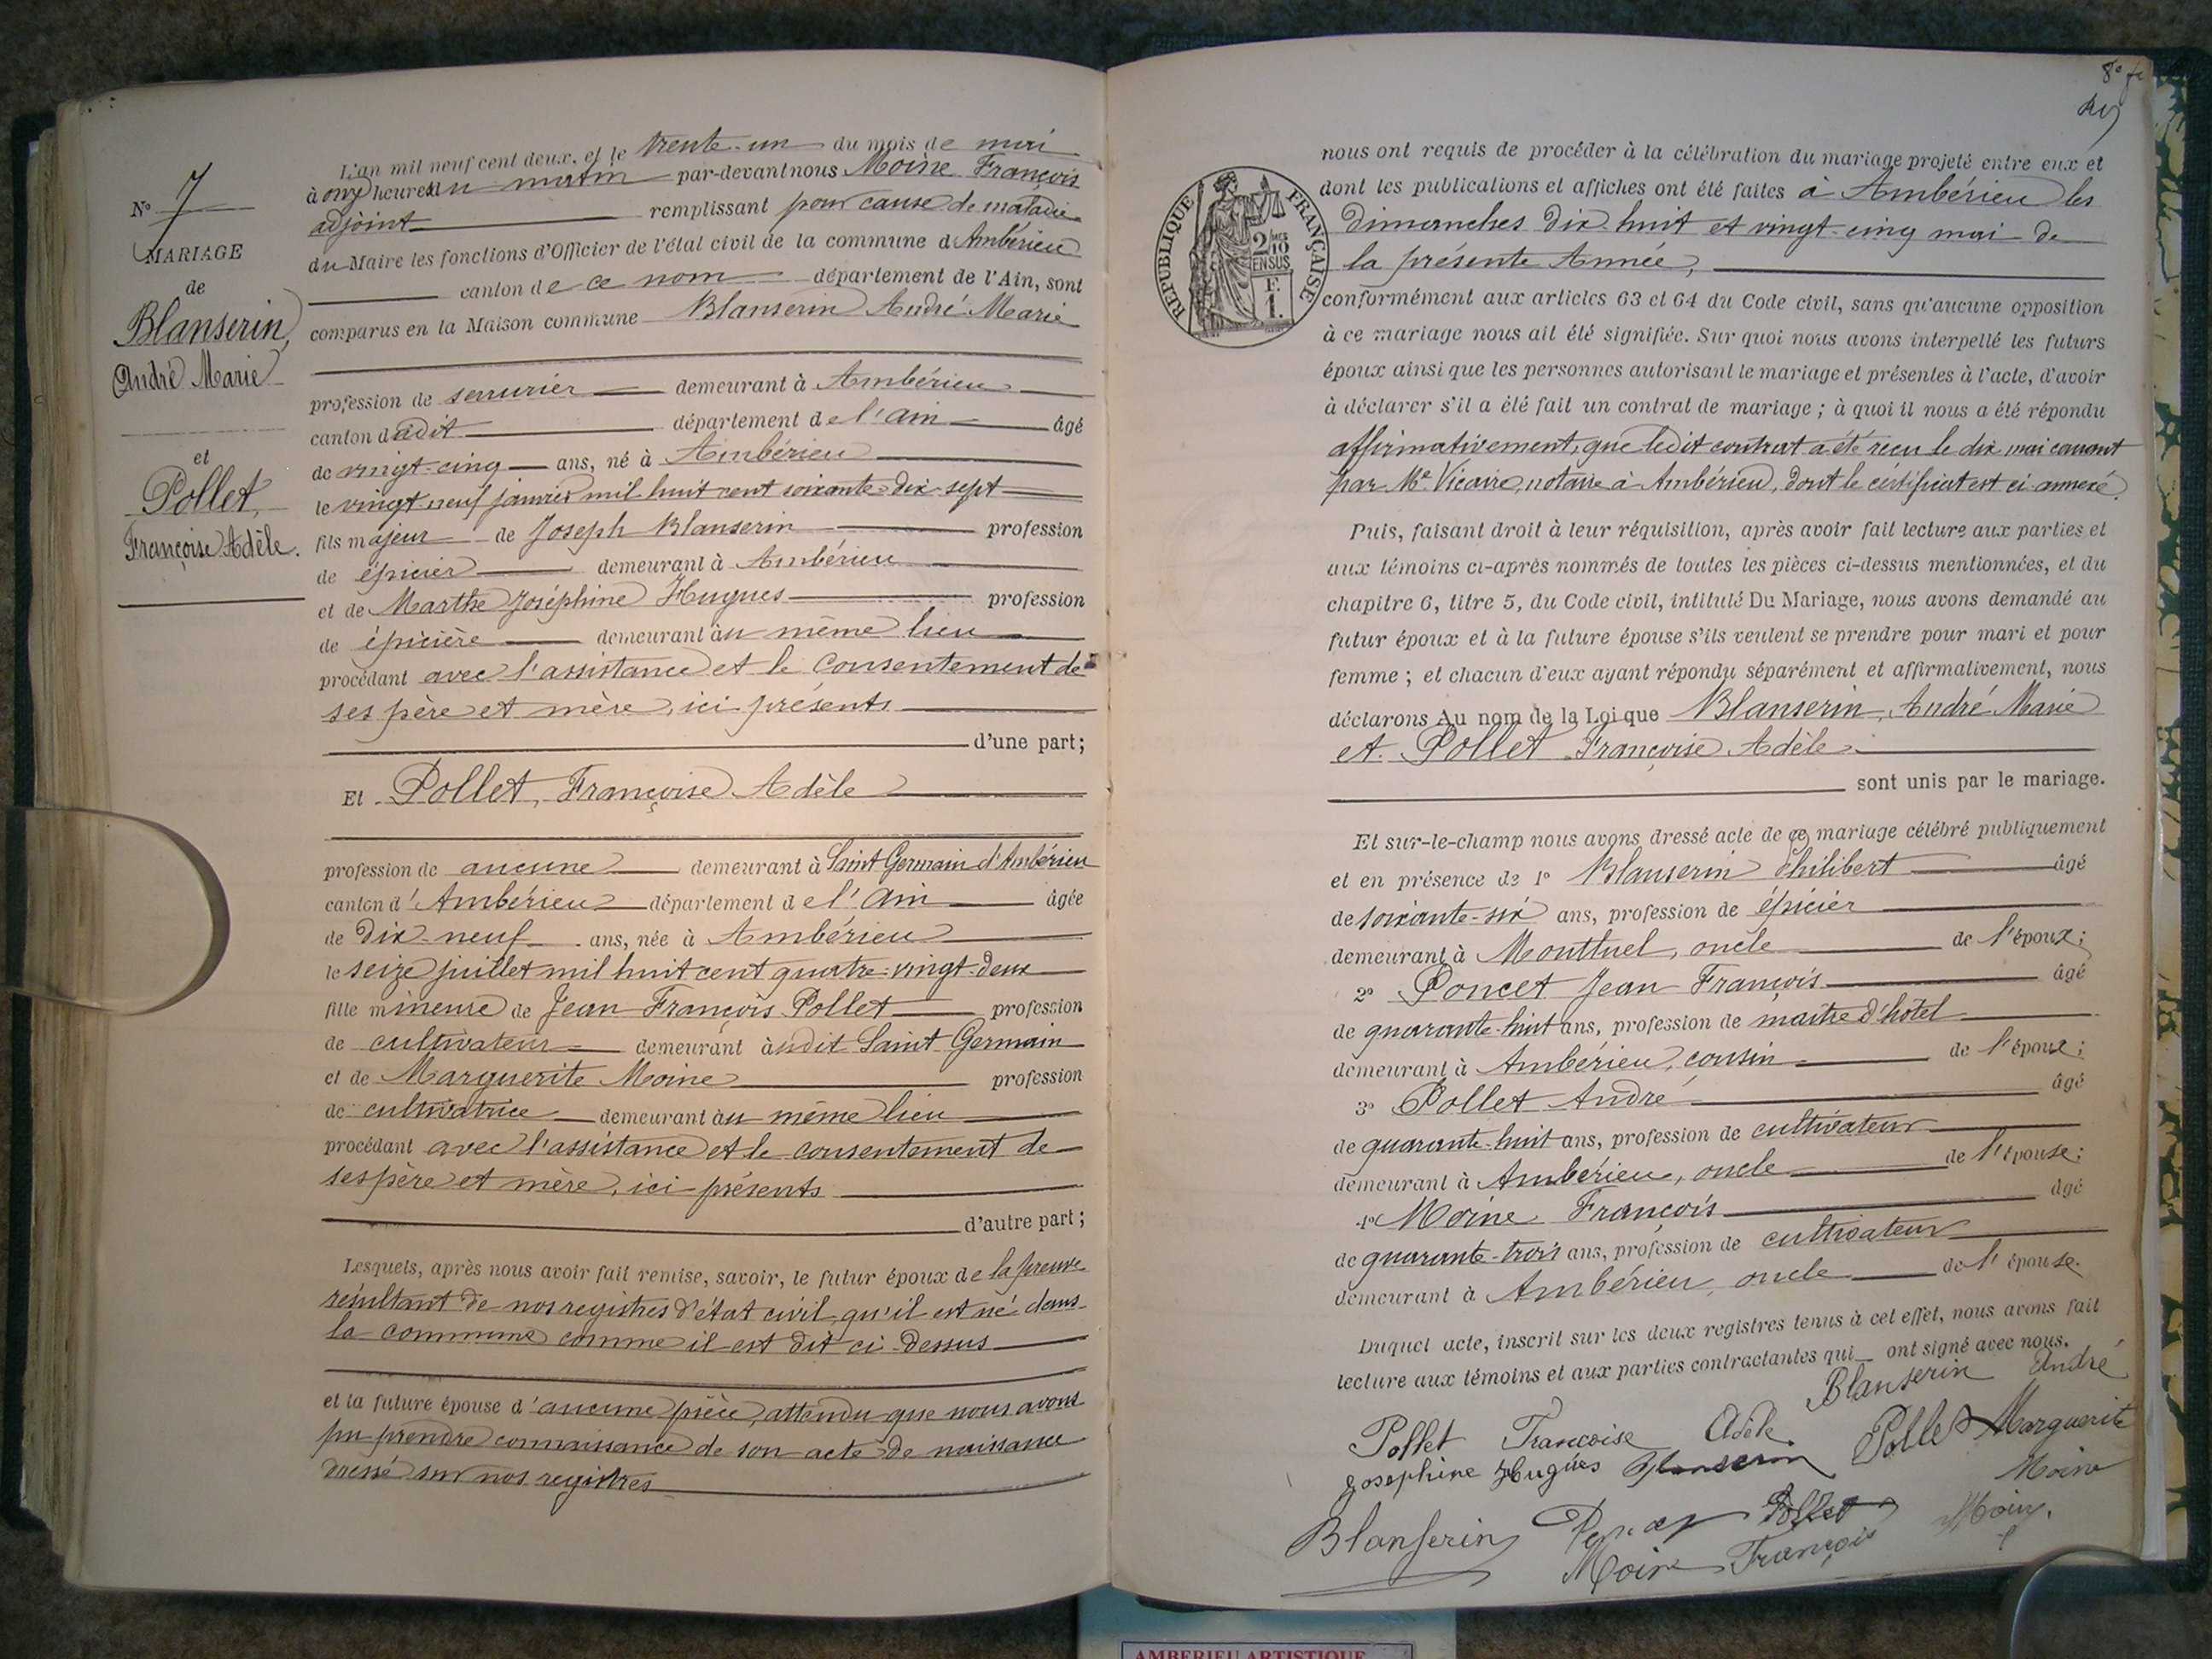 N° 7
MARIAGE
de
Blanserin,
André Marie
et
Pollet,
Françoise Adèle.
L'an mil neuf cent deux, et le trente-un du mois de mai
à onze heures du matin par-devant nous Moine François
adjoint remplissant pour cause de maladie
du Maire les fonctions d'Officier de l'état civil de la commune d'Ambérieu
canton de ce nom département de l'Ain, sont
comparus en la Maison commune Blanserin André Marie
profession de serrurier demeurant à Ambérieu
canton dudit département de l'Ain âgé
de vingt-cinq ans, né à Ambérieu
le vingt neuf janvier mil huit cent soixante-dix-sept
fils majeur de Joseph Blanserin profession
de épicier demeurant à Ambérieu
et de Marthe Joséphine Hugues profession
de épicière demeurant au même lieu
procédant avec l'assistance et le consentement de
ses père et mère, ici présents
d'une part;
Et Pollet, Françoise Adèle
profession de aucune demeurant à Saint Germain d'Ambérieu
canton d'Ambérieu département de l'Ain âgée
de dix-neuf ans, née à Ambérieu
le seize juillet mil huit cent quatre-vingt-deux
fille mineure de Jean François Pollet profession
de cultivateur demeurant audit Saint Germain
et de Marguerite Moine profession
de cultivatrice demeurant au même lieu
procédant avec l'assistance et le consentement de
ses père et mère, ici présents
d'autre part;
Lesquels, après nous avoir fait remise, savoir, le futur époux de la preuve
résultant de nos registres d'état civil, qu'il est né dans
la commune comme il est dit ci-dessus
et la future épouse d'aucune pièce, attendu que nous avons
pu prendre connaissance de son acte de naissance
dressé sur nos registres
8e
RÉPUBLIQUE FRANÇAISE
2/10 EN SUS
F. 1.
nous ont requis de procéder à la célébration du mariage projeté entre eux et
dont les publications et affiches ont été faites à Ambérieu les
dimanches dix-huit et vingt-cinq mai de
la présente Année,
conformément aux articles 63 et 64 du Code civil, sans qu'aucune opposition
à ce mariage nous ait été signifiée. Sur quoi nous avons interpellé les futurs
époux ainsi que les personnes autorisant le mariage et présentes à l'acte, d'avoir
à déclarer s'il a été fait un contrat de mariage ; à quoi il nous a été répondu
affirmativement, que ledit contrat a été reçu le dix mai courant
par Me Vicaire, notaire à Ambérieu, dont le certificat est ci-annexé.
Puis, faisant droit à leur réquisition, après avoir fait lecture aux parties et
aux témoins ci-après nommés de toutes les pièces ci-dessus mentionnées, et du
chapitre 6, titre 5, du Code civil, intitulé Du Mariage, nous avons demandé au
futur époux et à la future épouse s'ils veulent se prendre pour mari et pour
femme ; et chacun d'eux ayant répondu séparément et affirmativement, nous
déclarons Au nom de la Loi que Blanserin, André Marie
et Pollet Françoise Adèle
sont unis par le mariage.
Et sur-le-champ nous avons dressé acte de ce mariage célébré publiquement
et en présence de 1° Blanserin Philibert âgé
de soixante-six ans, profession de épicier
demeurant à Montluel, oncle de l'époux;
2° Poncet Jean François âgé
de quarante-huit ans, profession de maître d'hôtel
demeurant à Ambérieu, cousin de l'époux;
3° Pollet André âgé
de quarante-huit ans, profession de cultivateur
demeurant à Ambérieu, oncle de l'épouse;
4° Moine François âgé
de quarante-trois ans, profession de cultivateur
demeurant à Ambérieu, oncle de l'épouse.
Duquel acte, inscrit sur les deux registres tenus à cet effet, nous avons fait
lecture aux témoins et aux parties contractantes qui ont signé avec nous.
Blanserin André
Pollet Françoise Adèle Pollet Marguerite
Josephine Hugues Blanserin Moine
Blanserin Pollet Moine
Moine François
AMBERIEU ARTISTIQUE